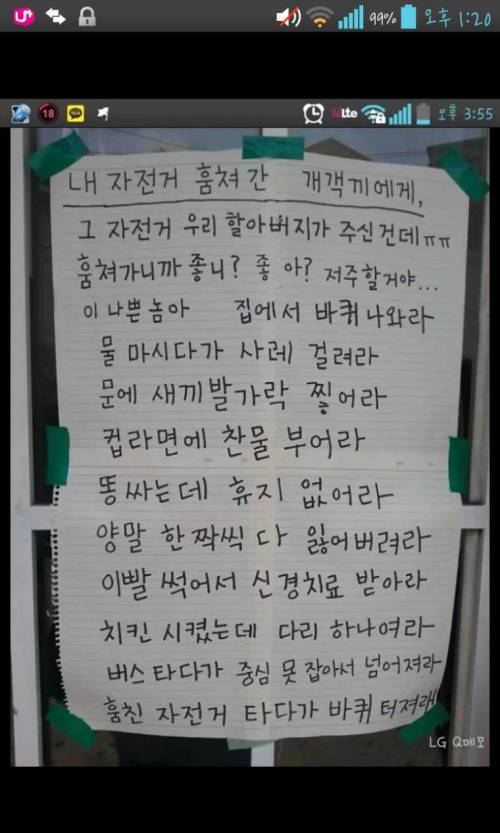 U+ 99% 오후 1:20
18 TALK LTE 오후 3:55
내 자전거 훔쳐간 개객끼에게,
그 자전거 우리 할아버지가 주신건데ㅠㅠ
훔쳐가니까 좋니? 좋아? 저주할거야...
이 나쁜놈아 집에서 바퀴 나와라
물 마시다가 사레 걸려라
문에 새끼발가락 찧어라
컵라면에 찬물 부어라
똥싸는데 휴지 없어라
양말 한짝씩 다 잃어버려라
이빨 썩어서 신경치료 받아라
치킨 시켰는데 다리 하나여라
버스타다가 중심 못 잡아서 넘어져라
훔친 자전거 타다가 바퀴 터져라
LG Q메모